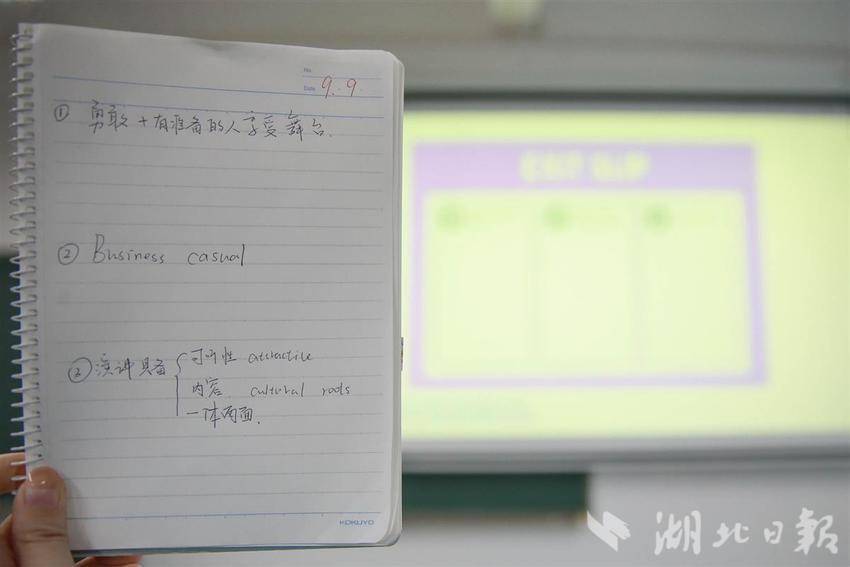 No.
Date 9.9.
① 勇敢 + 有准备的人享受舞台.
② Business casual
③ 演讲具备 可听性 attractive
内容 cultural roots
一体两面.
KOKUYO
湖北日報